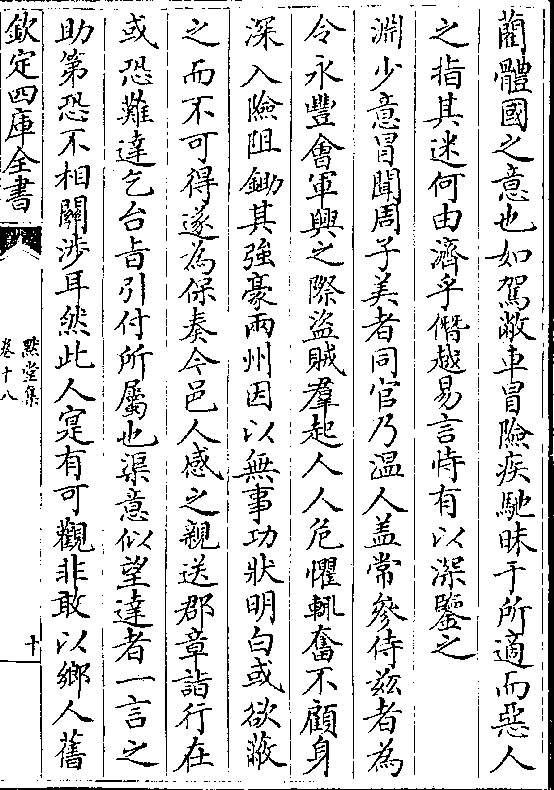 藺體國之意也如駕敝車冒險疾馳昧于所適而惡人
之指其迷何由濟乎僭越易言恃有以深鑒之
淵少意冒聞周子美者同官乃温人盖常參侍兹者為
令永豐㑹軍興之際盜賊羣起人人危懼輒奮不顧身
深入險阻鋤其強豪兩州因以無事功狀明白或欲蔽
之而不可得遂為保奏今邑人感之親送郡章詣行在
或恐難達乞台㫖引付所屬也渠意似望達者一言之
助第恐不相關涉耳然此人寔有可觀非敢以鄉人舊
欽定四庫全書
點堂集
卷十八
十